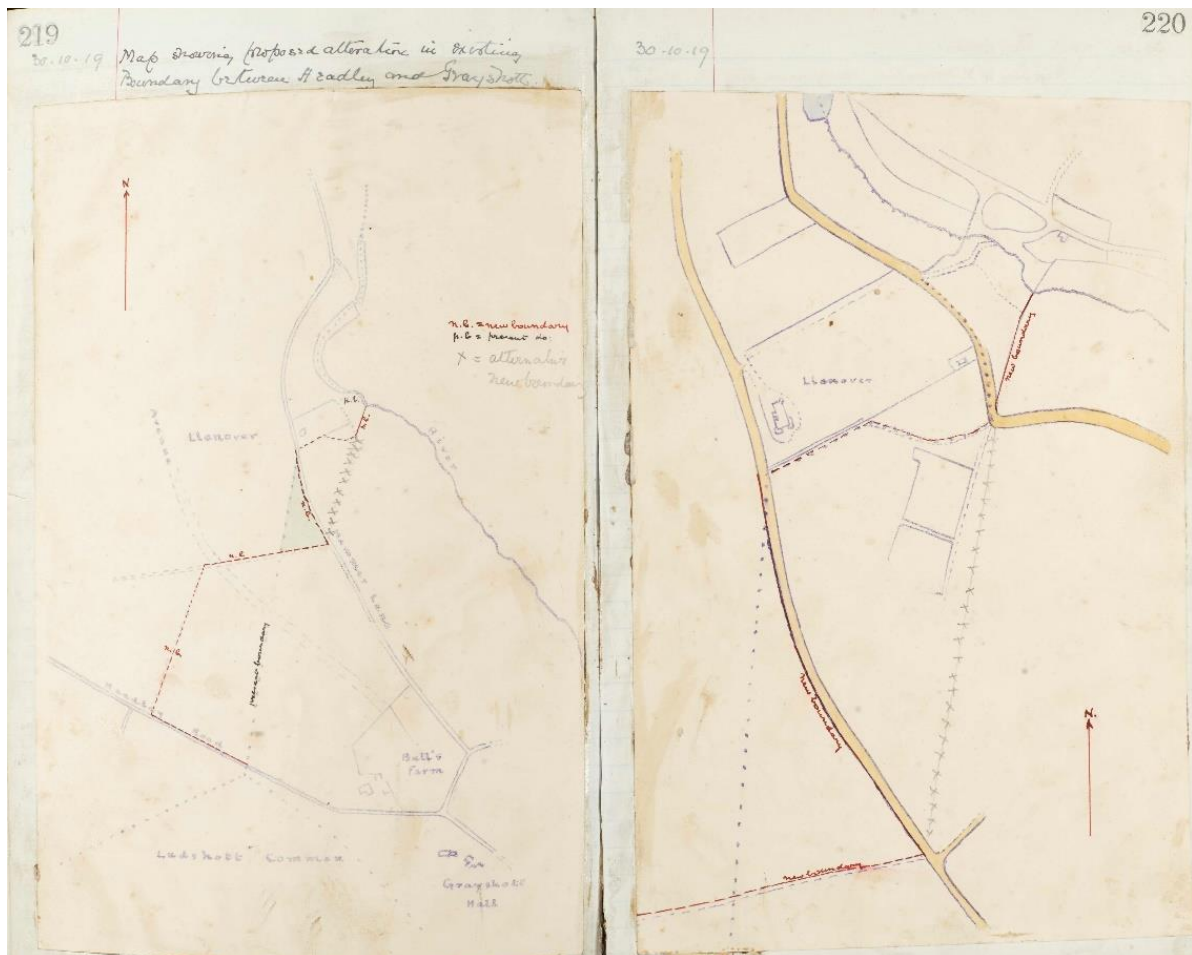 219
30.10.19 Map showing proposed alteration in existing
Boundary between Headley and Grayshott.
N.
n.b. = new boundary
p.b = present do.
X = alternative
new boundary
n.b.
n.b.
River
Llanover
n.b.
n.b.
Lane
n.b.
present boundary
Road
Bull's
Farm
Ludshott Common
Grayshott
Hall
220
30.10.19
new boundary
Llanover
new boundary
N.
new boundary